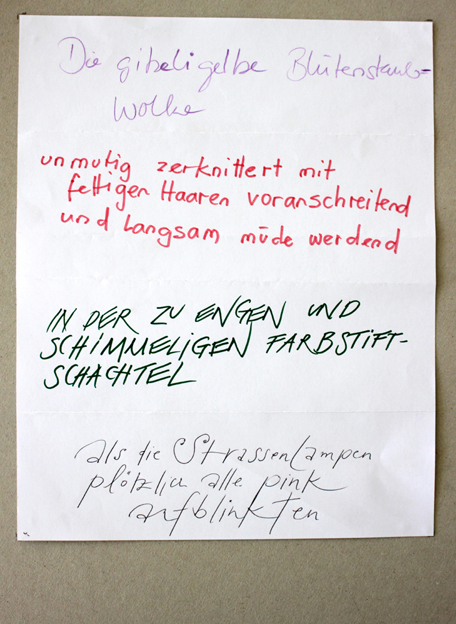 Die gitzeligelbe Blütenstaub-
Wolke
unmutig zerknittert mit
fettigen Haaren voranschreitend
und langsam müde werdend
IN DER ZU ENGEN UND
SCHIMMELIGEN FARBSTIFT-
SCHACHTEL
als die Strassenlampen
plötzlich alle pink
aufblinkten